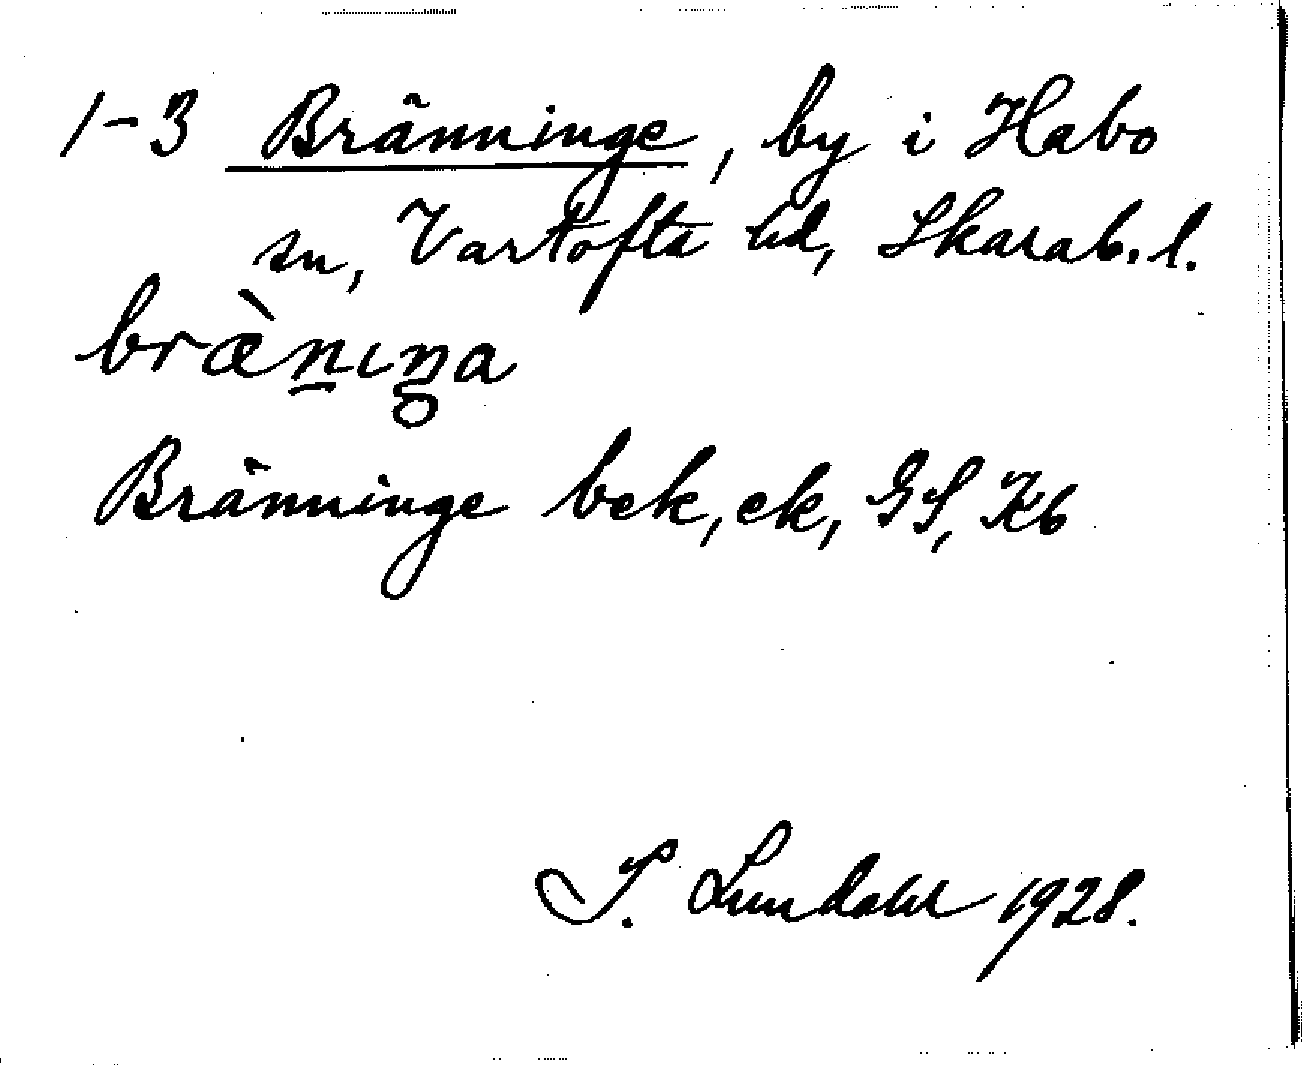 1-3 Bränninge, by i Habo
sn, Vartofta hd, Skarab. l.
bræ̀n̠ɩŋa
Bränninge bek, ek, GS, Kb
I. Lundahl 1928.